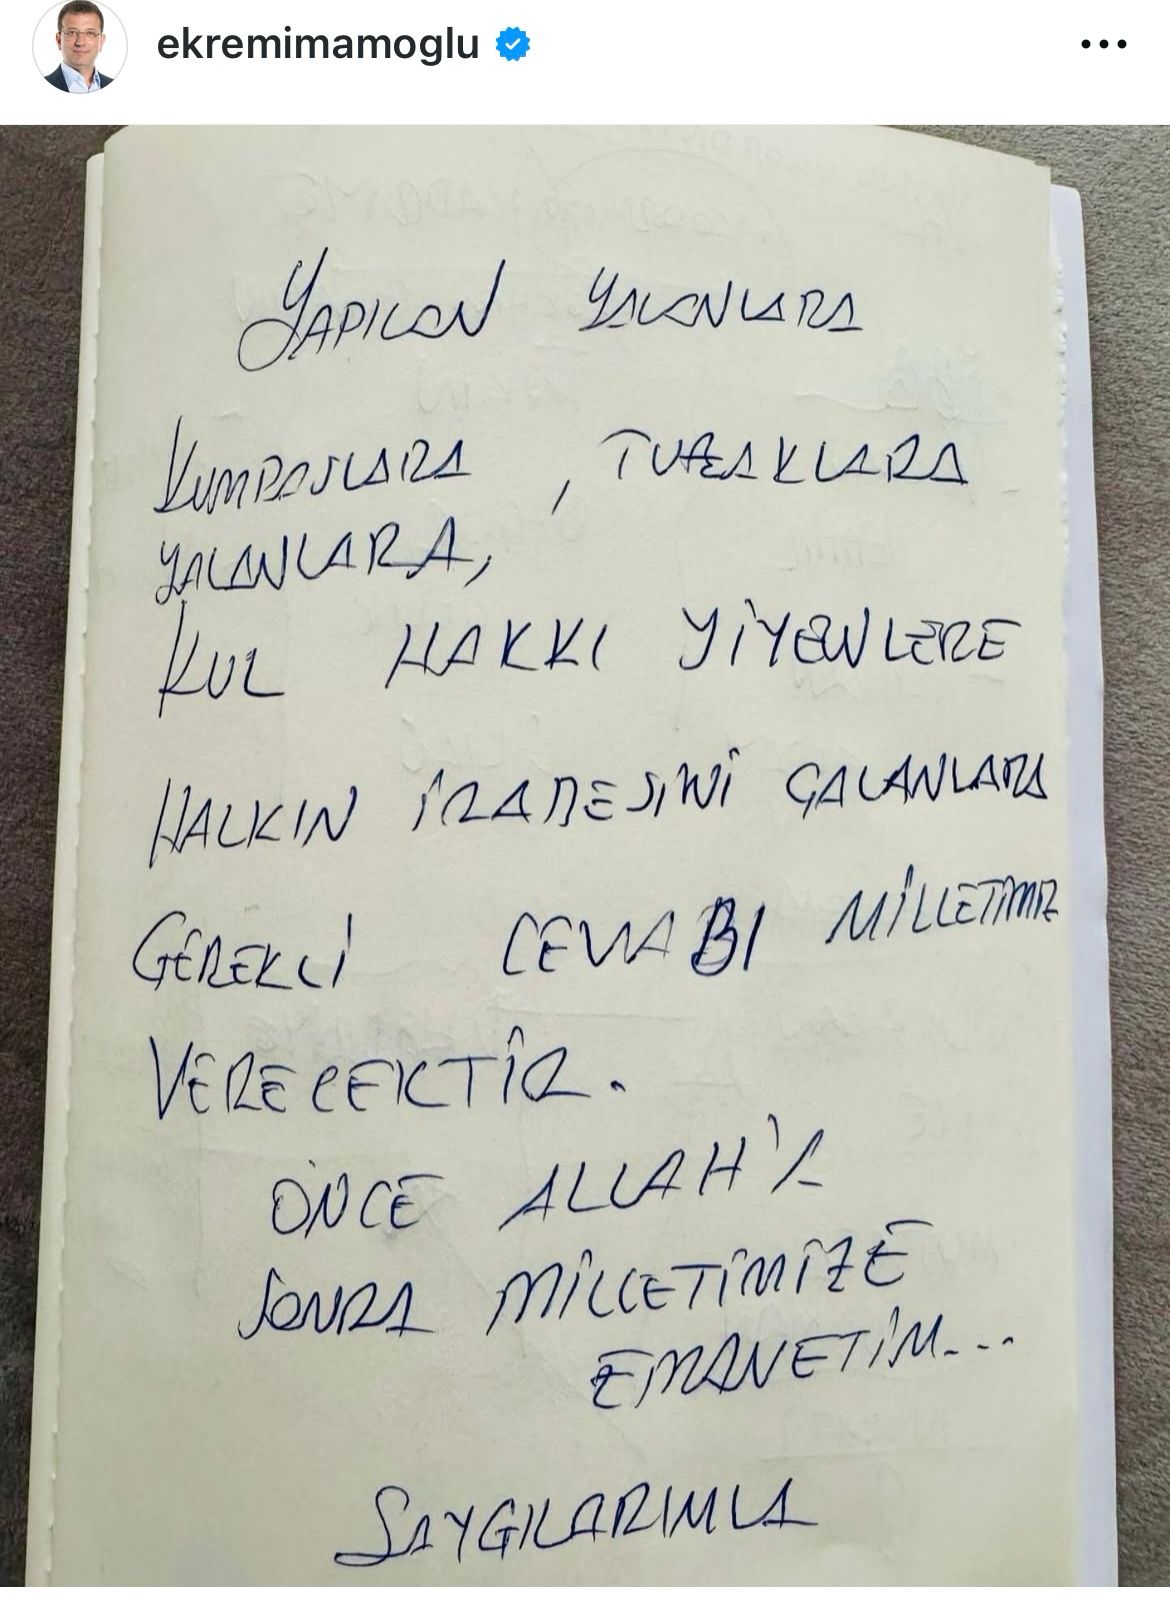 ekremimamoglu
YAPILAN YALANLARA
KUMPASLARA , TUZAKLARA
YALANLARA,
KUL HAKKI YİYENLERE
HALKIN İRADESİNİ ÇALANLARA
GEREKLİ CEVABI MİLLETİMİZ
VERECEKTİR.
ÖNCE ALLAH'A
SONRA MİLLETİMİZE
EMANETİM...
SAYGILARIMLA